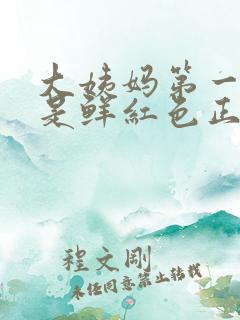 大姨妈第一
是鲜红色正
程文刚
未经同意禁止转载